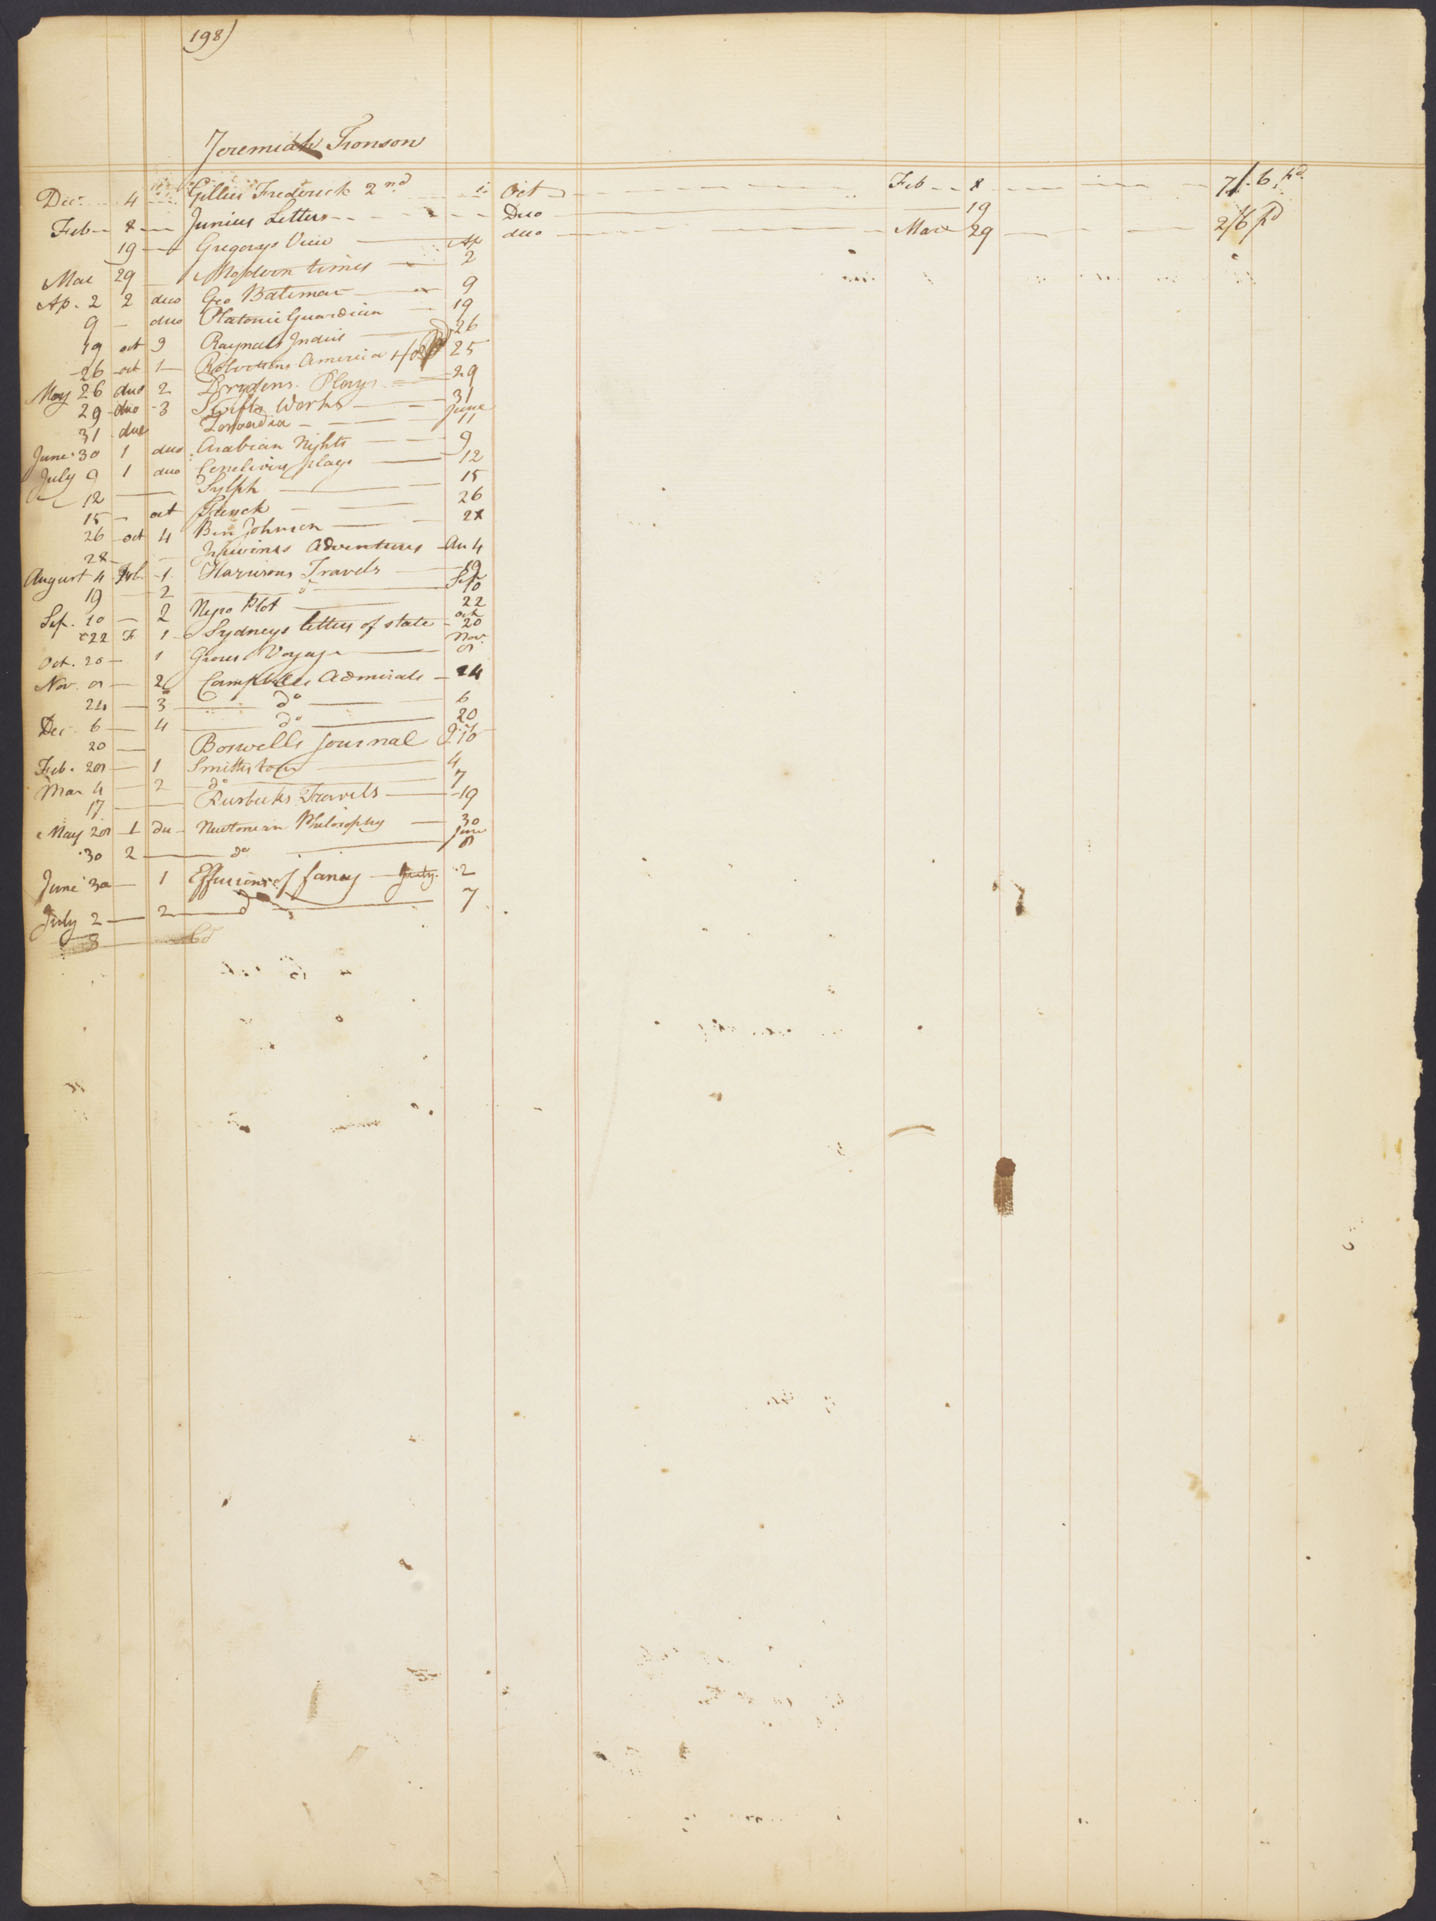 198)
Jeremiah Tronson
Dec 4 Gillies Frederick 2nd 1 Oct Feb 8 7/6 pd
Feb 8 Junius Letters Duo 19
19 Gregorys View duo Mar 29 2/6 pd
Mar 29 Modern times Ap 2
Ap. 2 2 duo Geo Bateman 9
9 duo Platonic Guardian 19
19 oct 3 Raynals Indies 26
26 oct 1 America 25
May 26 duo 2 Drydens Plays 29
29 duo 3 Swifts Works 31
31 duo June 11
June 30 1 duo Arabian Nights 9
July 9 1 duo plays 12
12 Sylph 15
15 oct 26
26 oct 4 Ben Johnson 28
28 Adventures Au 4
August 4 Fol 1 Harrisons Travels 19
19 2 do Sep 10
Sep. 10 2 Negro Plot 22
22 F 1 Sydneys letters of state oct 20
Oct. 20 1 Voyage Nov. 8
Nov. 8 2 Campbells Admirals 24
24 3 do 6
Dec 6 4 do 20
20 Boswells Journal
Feb. 28 1 Smiths tour 4
Mar 4 2 do 7
17 Travels 19
May 28 1 du Newtonian Philosophy 30
30 2 do June 8
June 30 1 Effusions of fancy July 2
July 2 2 d 7
8